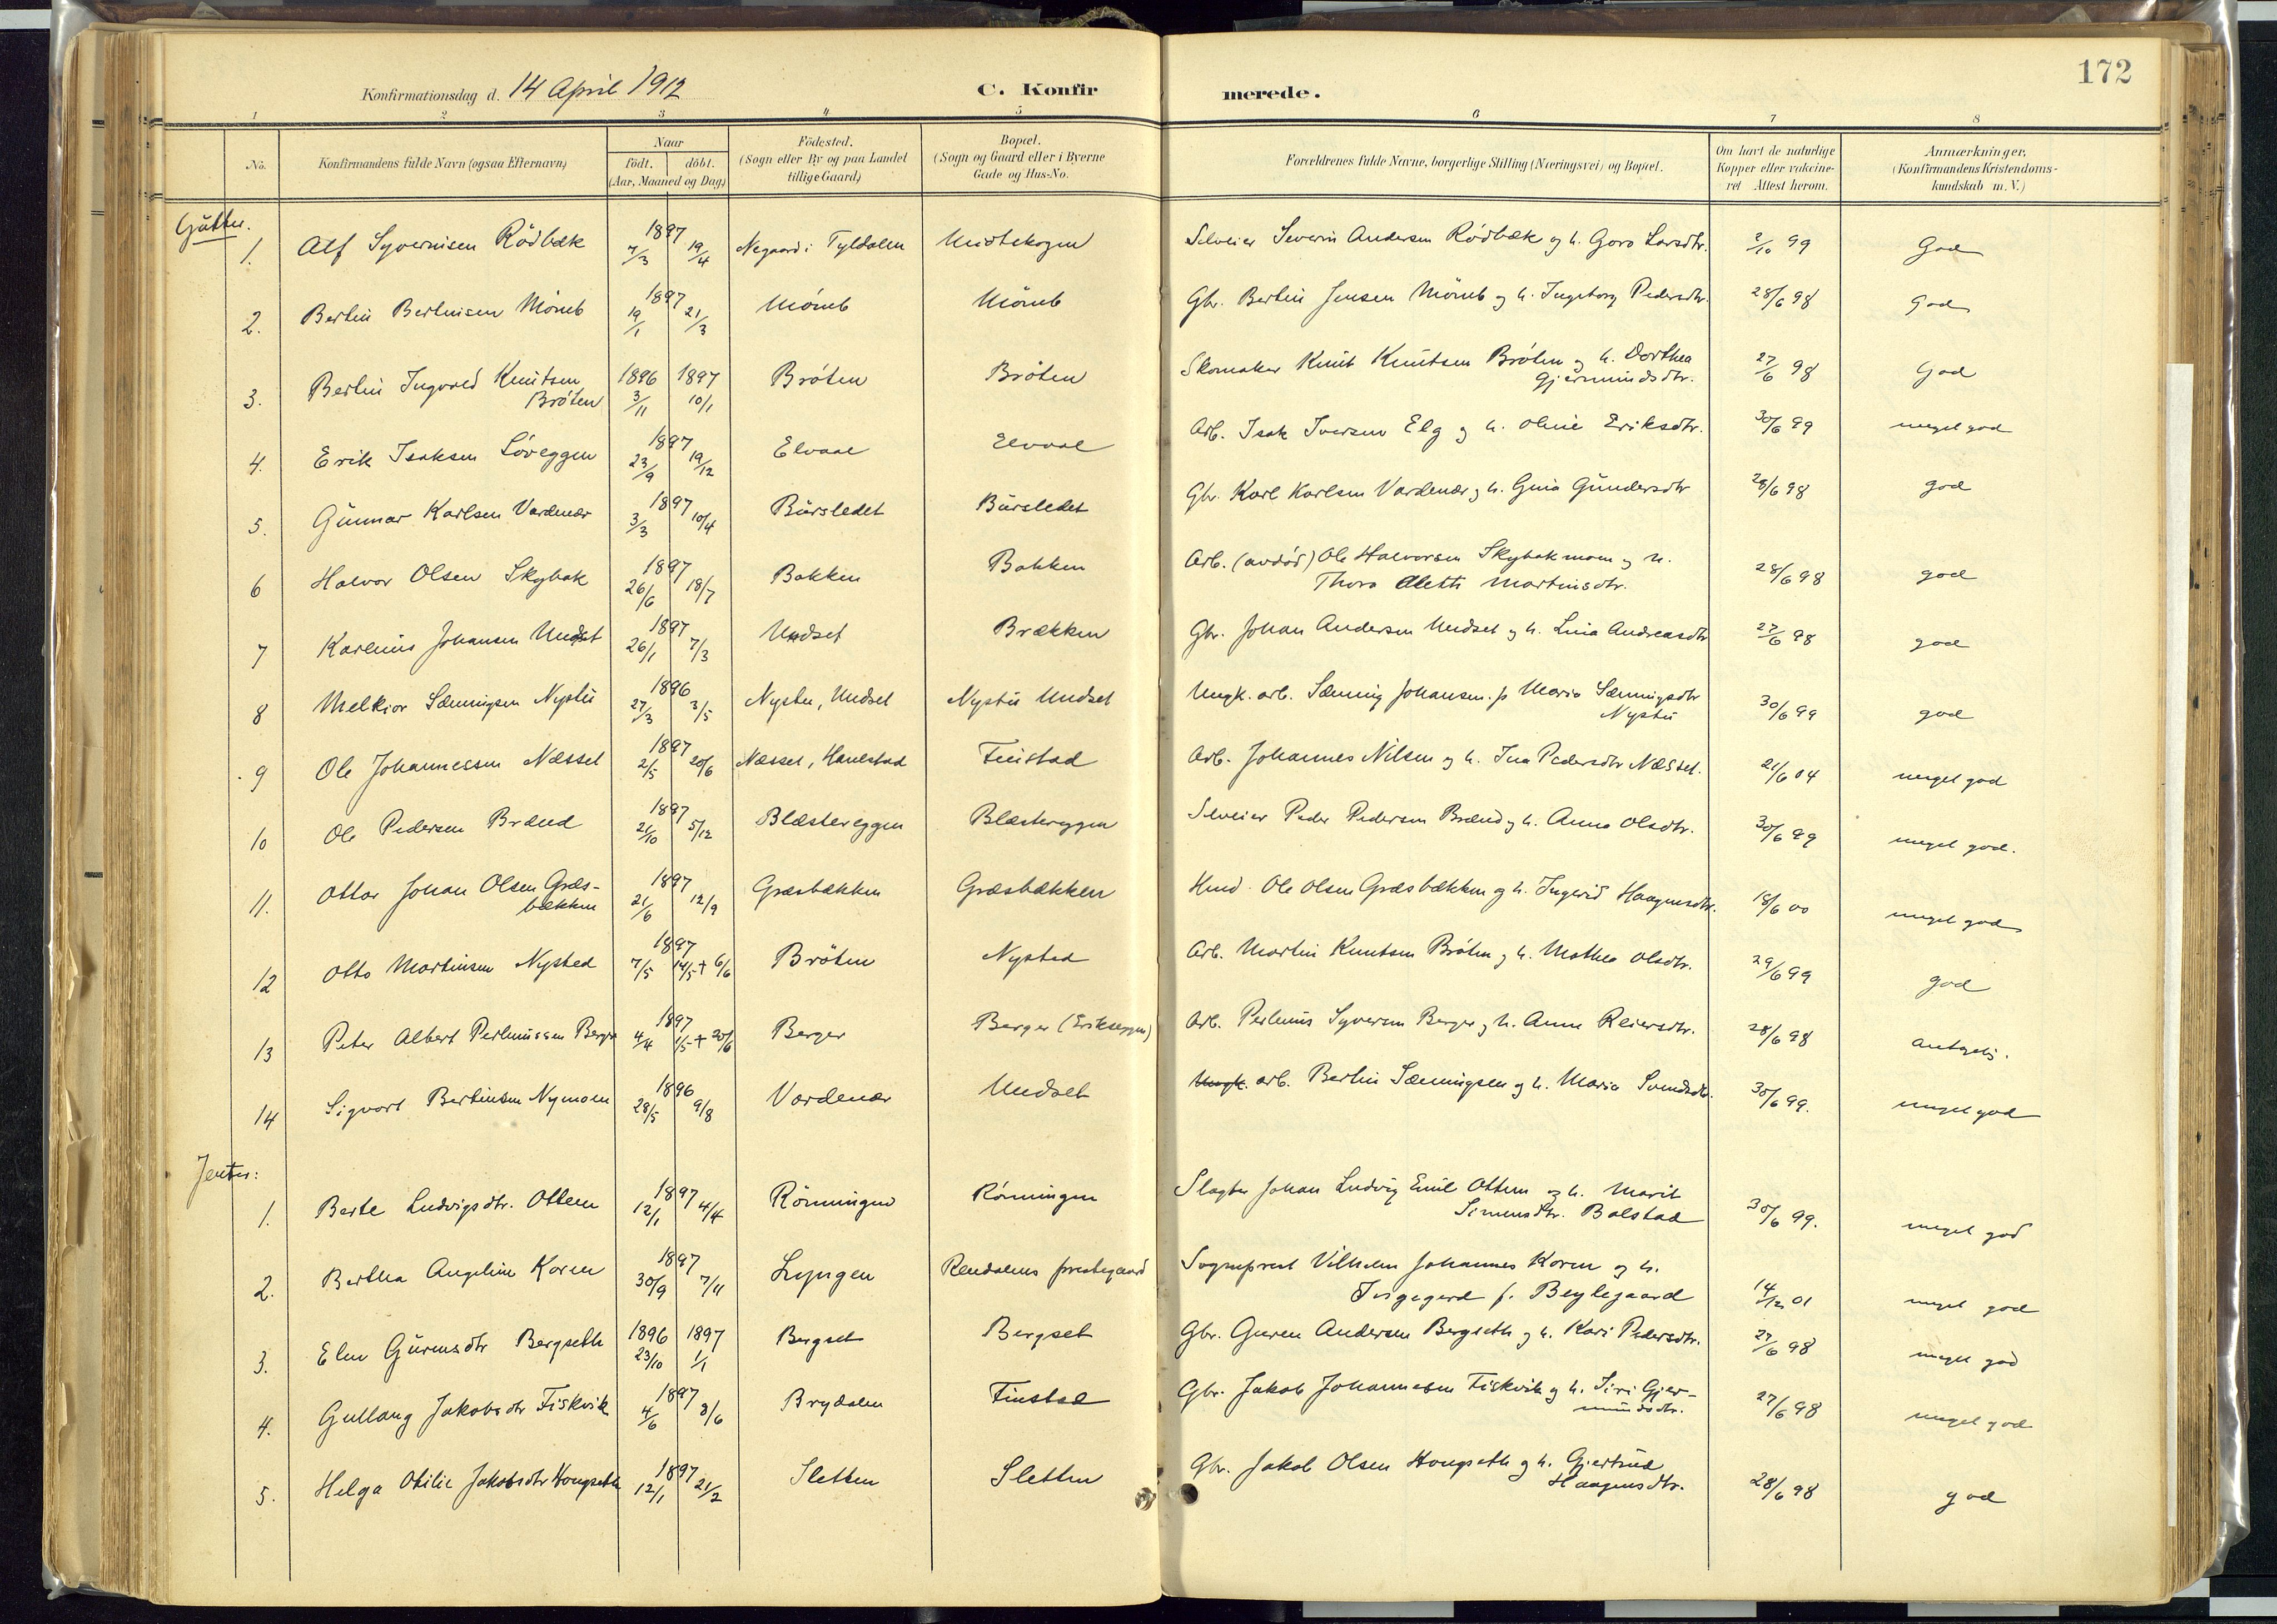 172
Konfirmationsdag d. 14 April 1912 C. Konfirmerede.
1 2 3 4 5 6 7 8
No. Konfirmandens fulde Navn (ogsaa Efternavn) Naar født. døbt. (Aar, Maaned og Dag) Fødested. (Sogn eller By og paa Landet tillige Gaard) Bopæl. (Sogn og Gaard eller i Byerne Gade og Hus-No. Forældrenes fulde Navne, borgerlige Stilling (Næringsvei) og Bopæl. Om havt de naturlige Kopper eller vakcineret Attest herom. Anmærkninger. (Konfirmandens Kristendomskundskab m. V.)
Gutter.
1. Alf Syversen Rödbæk 1897 7/3 19/4 Negaard i Tyldalen Midtskogen Selveier Severin Andersen Rødbæk og h. Goro Larsdtr. 2/10 99 God
2. Bertin Bertinsen Mömb 1897 19/1 21/3 Mömb Mömb Gbr. Bertin Jensen Mömb og h. Ingeborg Pedersdtr. 28/6 98 God
3. Bertin Ingvald Knutsen Bröten 1896 3/11 1897 10/1 Bröten Bröten Skomaker Knut Knutsen Bröten og h. Dorthea Gjermundsdtr. 27/6 98 God
4. Erik Isaksen Löveggen 1897 23/9 19/12 Elvaal Elvaal Arb. Isak Iversen Elg og h. Oline Eriksdtr. 30/6 99 meget god
5. Gunnar Karlsen Vardenær 1897 3/3 10/4 Bursledet Bursledet Gbr. Karl Karlsen Vardenær og h. Gina Gundersdtr 28/6 98 god
6 Halvor Olsen Skybak 1897 26/6 18/7 Bakken Bakken Arb. (avdöd) Ole Halvorsen Skybakmoen og h. Thora Aletti Martinsdtr. 28/6 98 god
7 Karenius Johansen Undset 1897 26/1 7/3 Undset Brækken Gbr. Johan Andersen Undset og h. Lina Andreasdtr 27/6 98 god
8 Melkior Sæmingsen Nystu 1896 27/3 3/5 Nystu, Undset Nystu Undset Ungk. arb. Sæming Johansen. p. Maria Sæmingsdtr Nystu 30/6 99 god
9 Ole Johannessen Næsset 1897 2/5 20/6 Næsset, Hanestad Finstad Arb. Johannes Nilsen og h. Ina Pedersdtr Næsset. 21/6 04 meget god
10 Ole Pedersen Brænd 1897 21/10 5/12 Blæstereggen Blæstereggen Selveier Peder Pedersen Brænd og h. Anna Olsdtr. 30/6 99 meget god.
11. Ottar Johan Olsen Græsbækken 1897 21/6 12/9 Græsbækken Græsbækken Husmd. Ole Olsen Græsbækken og h. Ingerid Haagensdtr. 18/6 00 meget god
12 Otto Martinsen Nysted 1897 7/5 14/5 + 6/6 Bröten Nysted Arb. Martin Knutsen Bröten og h. Mathea Olsdtr. 29/6 99 god
13 Peter Albert Perleniussen Berger 1897 4/4 1/5 + 20/6 Berger Berger (Erikseggen) Arb. Perlenius Syversen Berger og h. Anne Reiersdtr. 28/6 98 antagelig.
14 Sigvart Bertinsen Nymoen 1896 28/5 9/8 Vardenær Undset Ungk. arb. Bertin Sæmingsen og h. Maria Svendsdtr. 30/6 99. meget god
Jenter:
1. Berte Ludvigsdtr. Ottem 1897 12/1 4/4 Rönningen Rönningen Slagter Johan Ludvig Emil Ottem og h. Marit Simensdtr. Bolstad 30/6 99. meget god
2. Bertha Angeline Koren 1897 30/9 7/11 Lyngen Rendalens prestegaard Sogneprest Vilhelm Johannes Koren og h. Ingegerd f. Beylegaard 14/12 01 meget god
3. Elen Gurensdtr Bergseth 1896 23/10 1897 1/1 Bergset Bergset Gbr. Guren Andersen Bergseth og h. Kari Pedersdtr. 27/6 98 meget god
4. Gullaug Jakobsdtr Fiskvik 1897 4/6 8/6 Brydalen Finstad Gbr. Jakob Johannesen Fiskvik og h. Siri Gjermundsdtr. 27/6 98 meget god
5. Helga Otilie Jakobsdtr Hougseth 1897 12/1 21/2 Sletten Sletten Gbr. Jakob Olsen Hougseth og h. Gjertrud Haagensdtr. 28/6 98 god